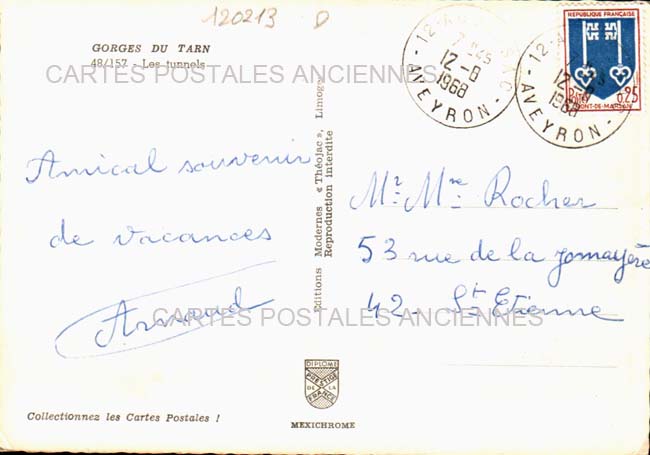 120213 D
GORGES DU TARN
48/157 - Les tunnels
CARTES POSTALES ANCIENNES
Amical souvenir
de vacances
Arnaud
CARTES POSTALES ANCIENNES
Collectionnez les Cartes Postales !
Editions Modernes « Théojac », Limoges
Reproduction Interdite
DIPLOME
PRESTIGE
DE LA
FRANCE
MEXICHROME
12-8
1968
AVEYRON
12-8
1968
AVEYRON
REPUBLIQUE FRANÇAISE
Postes 0,25
MONT-DE-MARSAN
Mr. Mme. Rocher
53 rue de la Jomayère
42 - St. Etienne